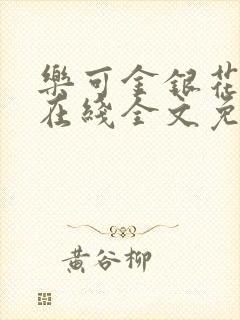 樂可金銀花
在綫全文免
黄谷柳